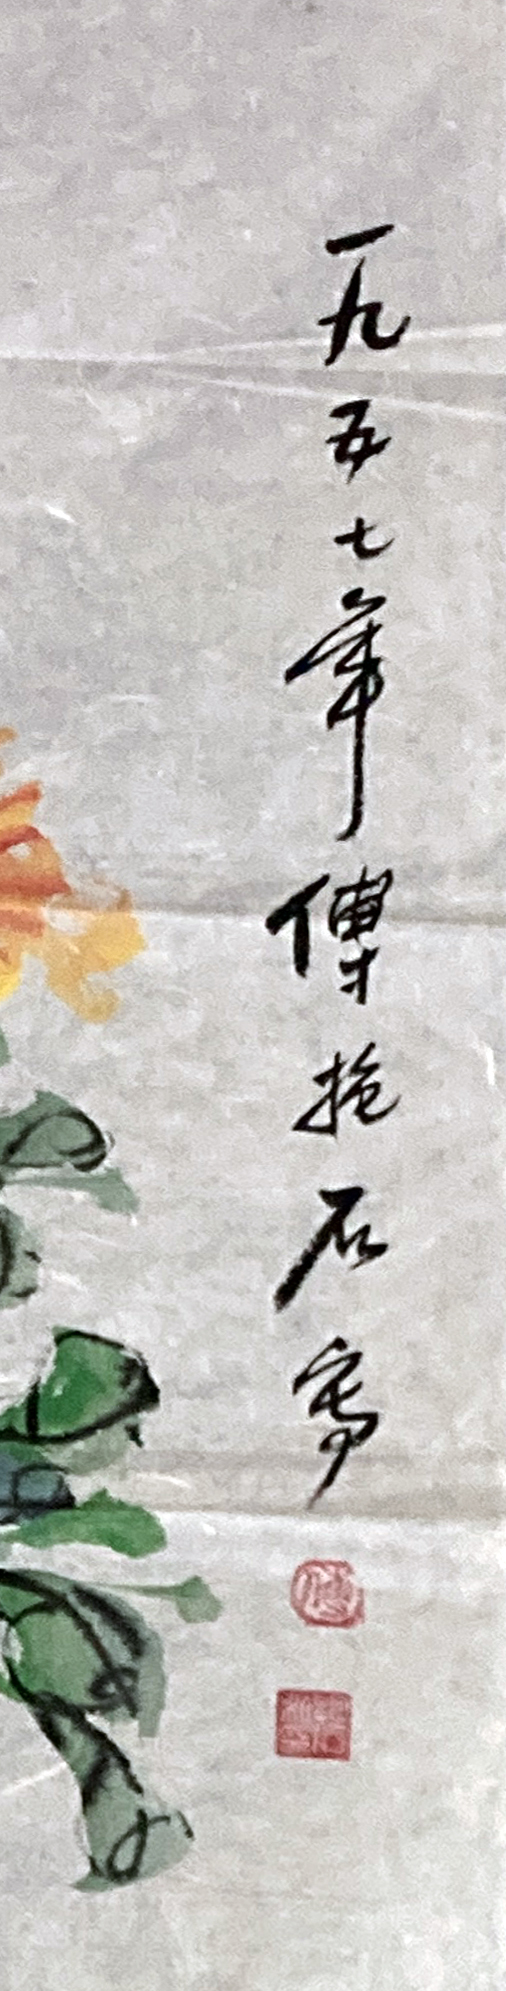 一九五七年傅抱石寫